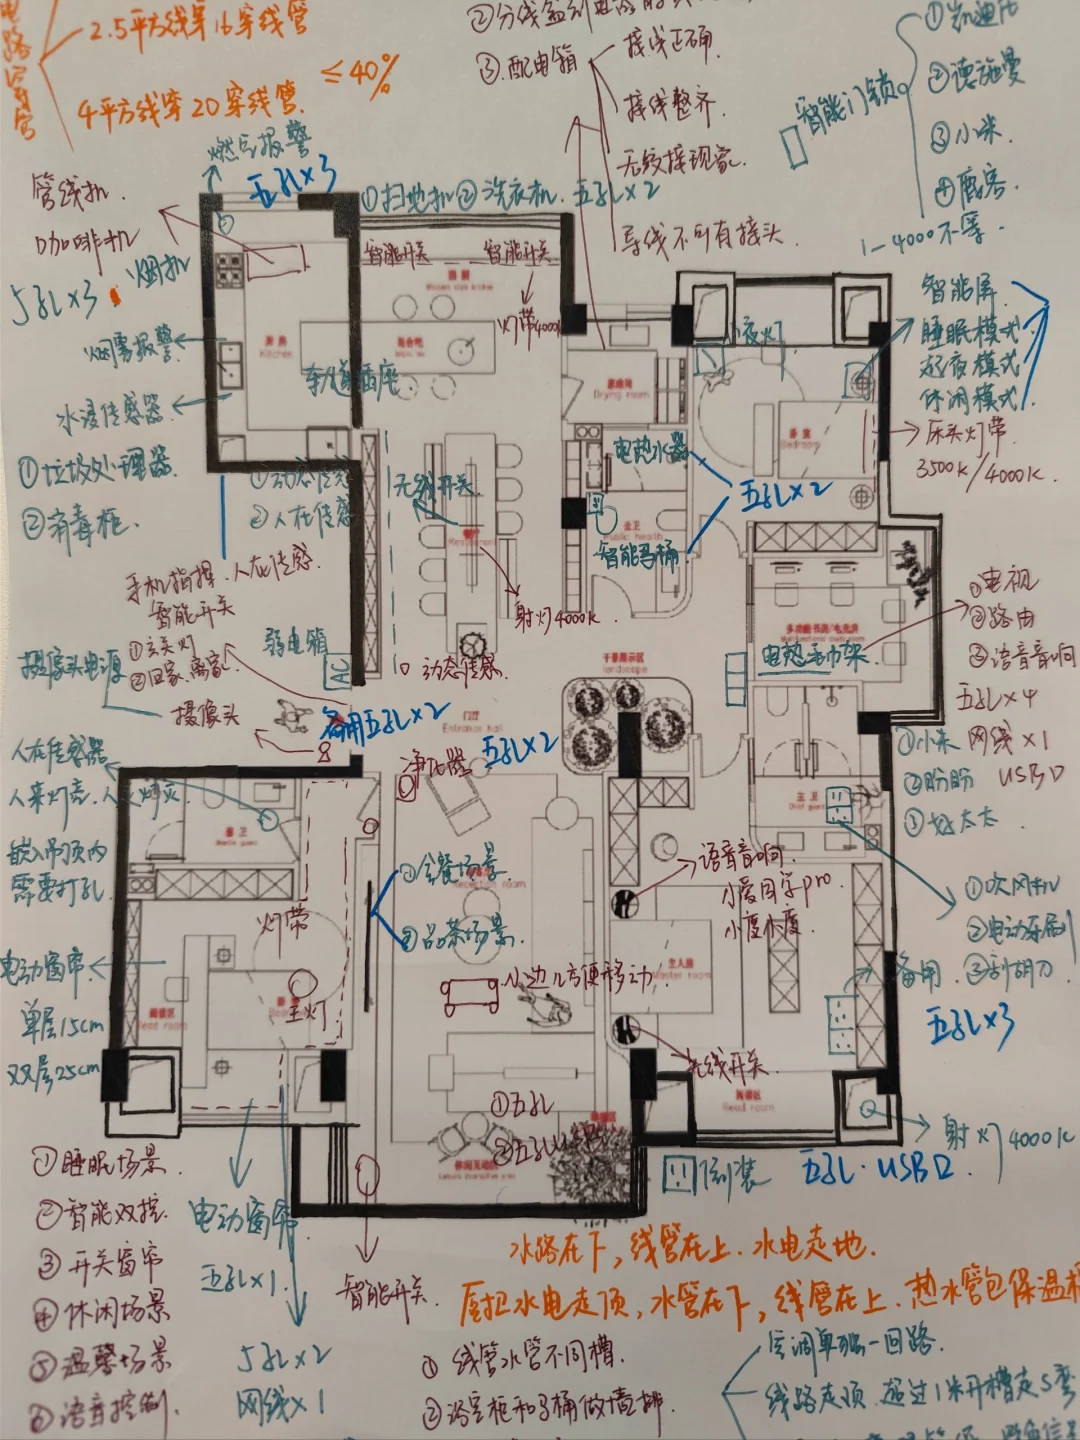 2.5平方线穿16穿线管
4平方线穿20穿线管
≤40%
③.配电箱
接线正确.
接线整齐.
无绞接现象.
导线不可有接头.
智能门锁
②德施曼
③小米.
1-4000不等.
燃气报警
五孔×3
①扫地机②洗衣机.五孔×2
管线机.
咖啡机
5孔×3
烟机
烟雾报警.
水浸传感器.
①垃圾处理器.
②消毒柜.
智能开关
智能开关
灯带4000k
厨房
Kitchen
轨道插座
Drying room
小夜灯
智能屏.
睡眠模式.
起夜模式
休闲模式.
床头灯带
3500k/4000k.
卧室
Bedroom
电热水器
五孔×2
公卫
智能马桶
①动态传感
②人在传感
无线开关.
射灯4000k.
人在传感.
智能开关
①玄关灯
②回家.离家.
弱电箱
摄像头电源
摄像头
动态传感.
门厅
Entrance hall
干景展示区
landscape
电热毛巾架.
①电视
②路由
③语音音响
五孔×4
网线×1
USB口
①小米
②盼盼
③好太太
备用五孔×2
五孔×2
净化器
人在传感器
人来灯亮.人走灯灭.
嵌入吊顶内
需要打孔.
客卫
主卫
电动窗帘.
单层15cm
双层25cm
灯带
主灯
Read room
①会餐场景.
②品茶场景.
小边几方便移动.
语音音响.
小爱同学pro.
小度小度.
主人房
Master room
无线开关.
①吹风机
②电动牙刷
③刮胡刀
备用.
五孔×3
Read room
射灯4000k
①五孔
倒装
五孔.USB口.
①睡眠场景.
②智能双控.
③开关窗帘
④休闲场景
⑤温馨场景
⑥语音控制.
电动窗帘
五孔×1.
5孔×2
网线×1
智能开关.
水路在下,线管在上.水电走地.
厨卫水电走顶,水管在下,线管在上.热水管包保温棉
①线管水管不同槽.
②浴室柜和马桶做墙排.
空调单独一回路.
线路走顶.超过1米开槽走S弯